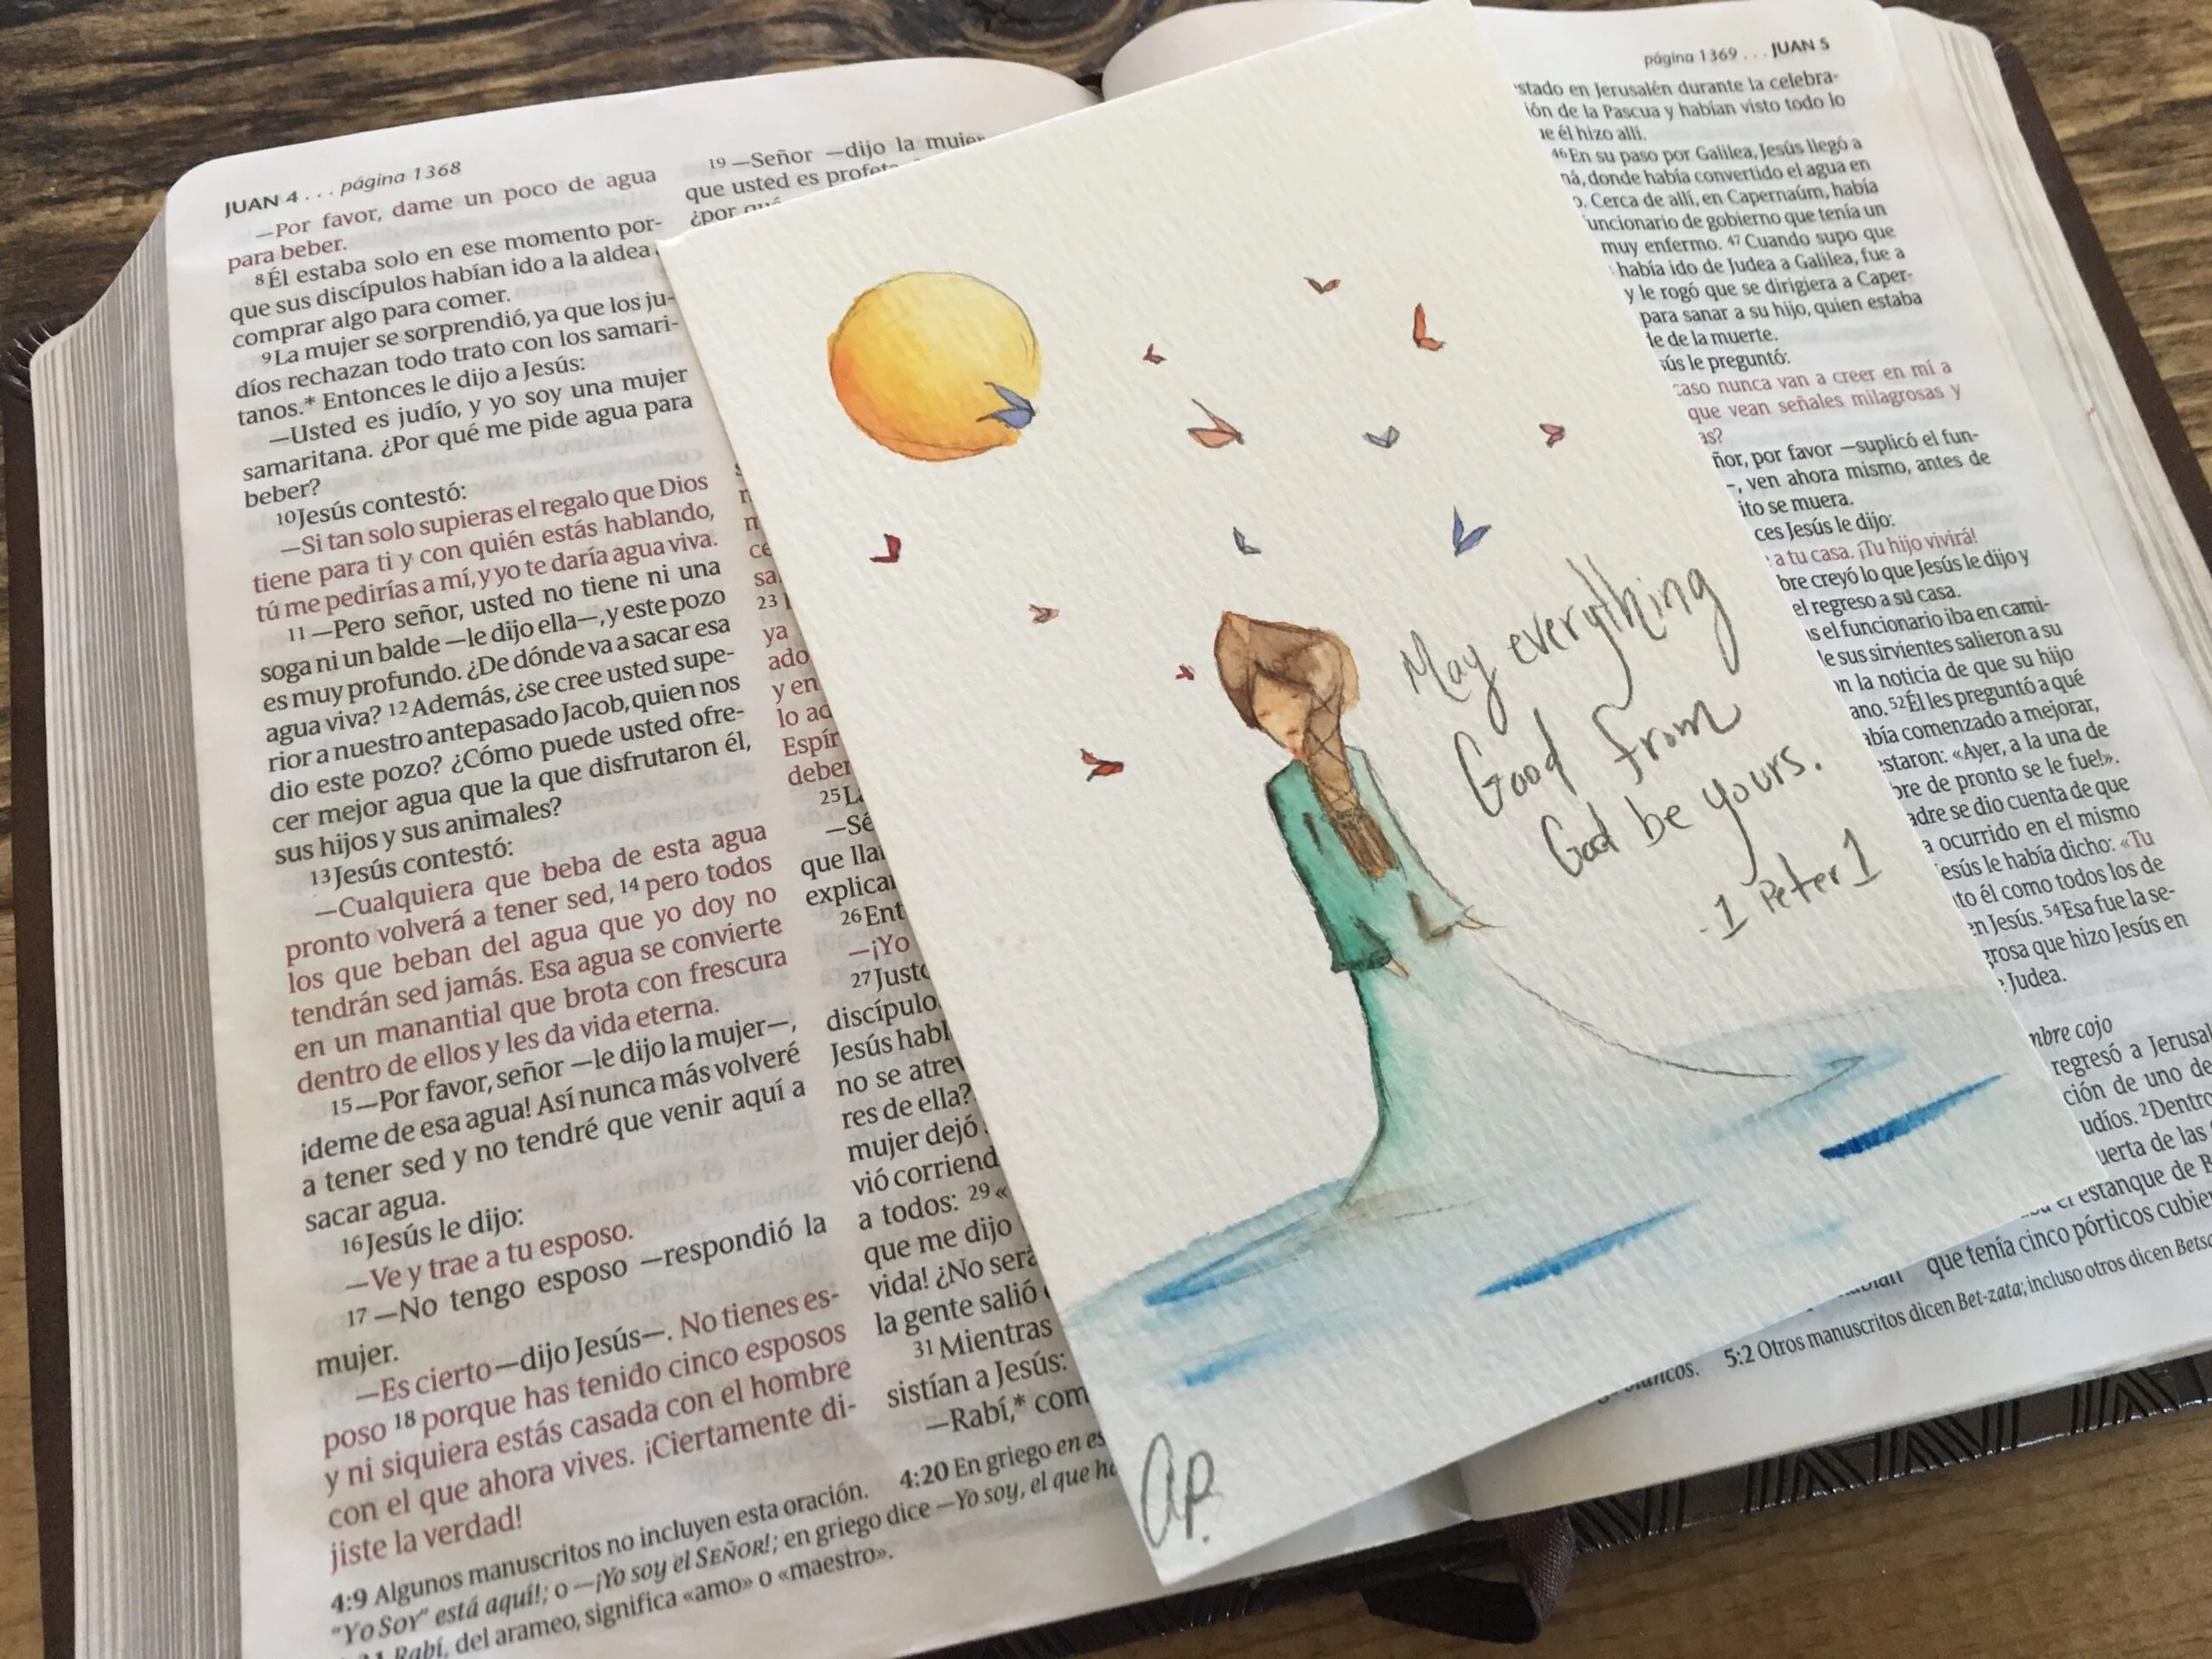 JUAN 4 . . . página 1368
—Por favor, dame un poco de agua
para beber.
8 Él estaba solo en ese momento por-
que sus discípulos habían ido a la aldea a
comprar algo para comer.
9 La mujer se sorprendió, ya que los ju-
díos rechazan todo trato con los samari-
tanos.* Entonces le dijo a Jesús:
—Usted es judío, y yo soy una mujer
samaritana. ¿Por qué me pide agua para
beber?
10 Jesús contestó:
—Si tan solo supieras el regalo que Dios
tiene para ti y con quién estás hablando,
tú me pedirías a mí, y yo te daría agua viva.
11 —Pero señor, usted no tiene ni una
soga ni un balde —le dijo ella—, y este pozo
es muy profundo. ¿De dónde va a sacar esa
agua viva? 12 Además, ¿se cree usted supe-
rior a nuestro antepasado Jacob, quien nos
dio este pozo? ¿Cómo puede usted ofre-
cer mejor agua que la que disfrutaron él,
sus hijos y sus animales?
13 Jesús contestó:
—Cualquiera que beba de esta agua
pronto volverá a tener sed, 14 pero todos
los que beban del agua que yo doy no
tendrán sed jamás. Esa agua se convierte
en un manantial que brota con frescura
dentro de ellos y les da vida eterna.
15 —Por favor, señor —le dijo la mujer—,
¡deme de esa agua! Así nunca más volveré
a tener sed y no tendré que venir aquí a
sacar agua.
16 Jesús le dijo:
—Ve y trae a tu esposo.
17 —No tengo esposo —respondió la
mujer.
—Es cierto —dijo Jesús—. No tienes es-
poso 18 porque has tenido cinco esposos
y ni siquiera estás casada con el hombre
con el que ahora vives. ¡Ciertamente di-
jiste la verdad!
19 —Señor —dijo la mujer
que usted es
¿por qué
23
ya
y en
lo
25
—Sé
que
26
—¡Yo
27
Jesús
no se
res de ella?
mujer dejó
vió
a todos: 29 «
que me dijo
vida! ¿No será
la gente salió
31 Mientras
sistían a Jesús:
—Rabí,* com
4:9 Algunos manuscritos no incluyen esta oración. 4:20 En griego en es
"Yo Soy" está aquí!; o —¡Yo soy el SEÑOR!; en griego dice —Yo soy, el que
Rabí, del arameo, significa «amo» o «maestro».
May everything
Good from
God be yours.
-1 Peter 1
a.P.
página 1369 . . . JUAN 5
stado en Jerusalén durante la celebra-
ión de la Pascua y habían visto todo lo
ue él hizo allí.
46 En su paso por Galilea, Jesús llegó a
ná, donde había convertido el agua en
o. Cerca de allí, en Capernaúm, había
uncionario de gobierno que tenía un
muy enfermo. 47 Cuando supo que
había ido de Judea a Galilea, fue a
y le rogó que se dirigiera a Caper-
para sanar a su hijo, quien estaba
de de la muerte.
sús le preguntó:
caso nunca van a creer en mí a
que vean señales milagrosas y
as?
ñor, por favor —suplicó el fun-
—, ven ahora mismo, antes de
ito se muera.
ces Jesús le dijo:
a tu casa. ¡Tu hijo vivirá!
bre creyó lo que Jesús le dijo y
el regreso a su casa.
as el funcionario iba en cami-
de sus sirvientes salieron a su
on la noticia de que su hijo
ano. 52 Él les preguntó a qué
abía comenzado a mejorar,
staron: «Ayer, a la una de
bre de pronto se le fue!».
adre se dio cuenta de que
a ocurrido en el mismo
esús le había dicho: «Tu
to él como todos los de
en Jesús. 54 Esa fue la se-
grosa que hizo Jesús en
Judea.
mbre cojo
regresó a
ción de uno de
udíos. 2 Dentro
uerta de las
estanque de
que tenía cinco pórticos
5:2 Otros manuscritos dicen Bet-zata; incluso otros dicen